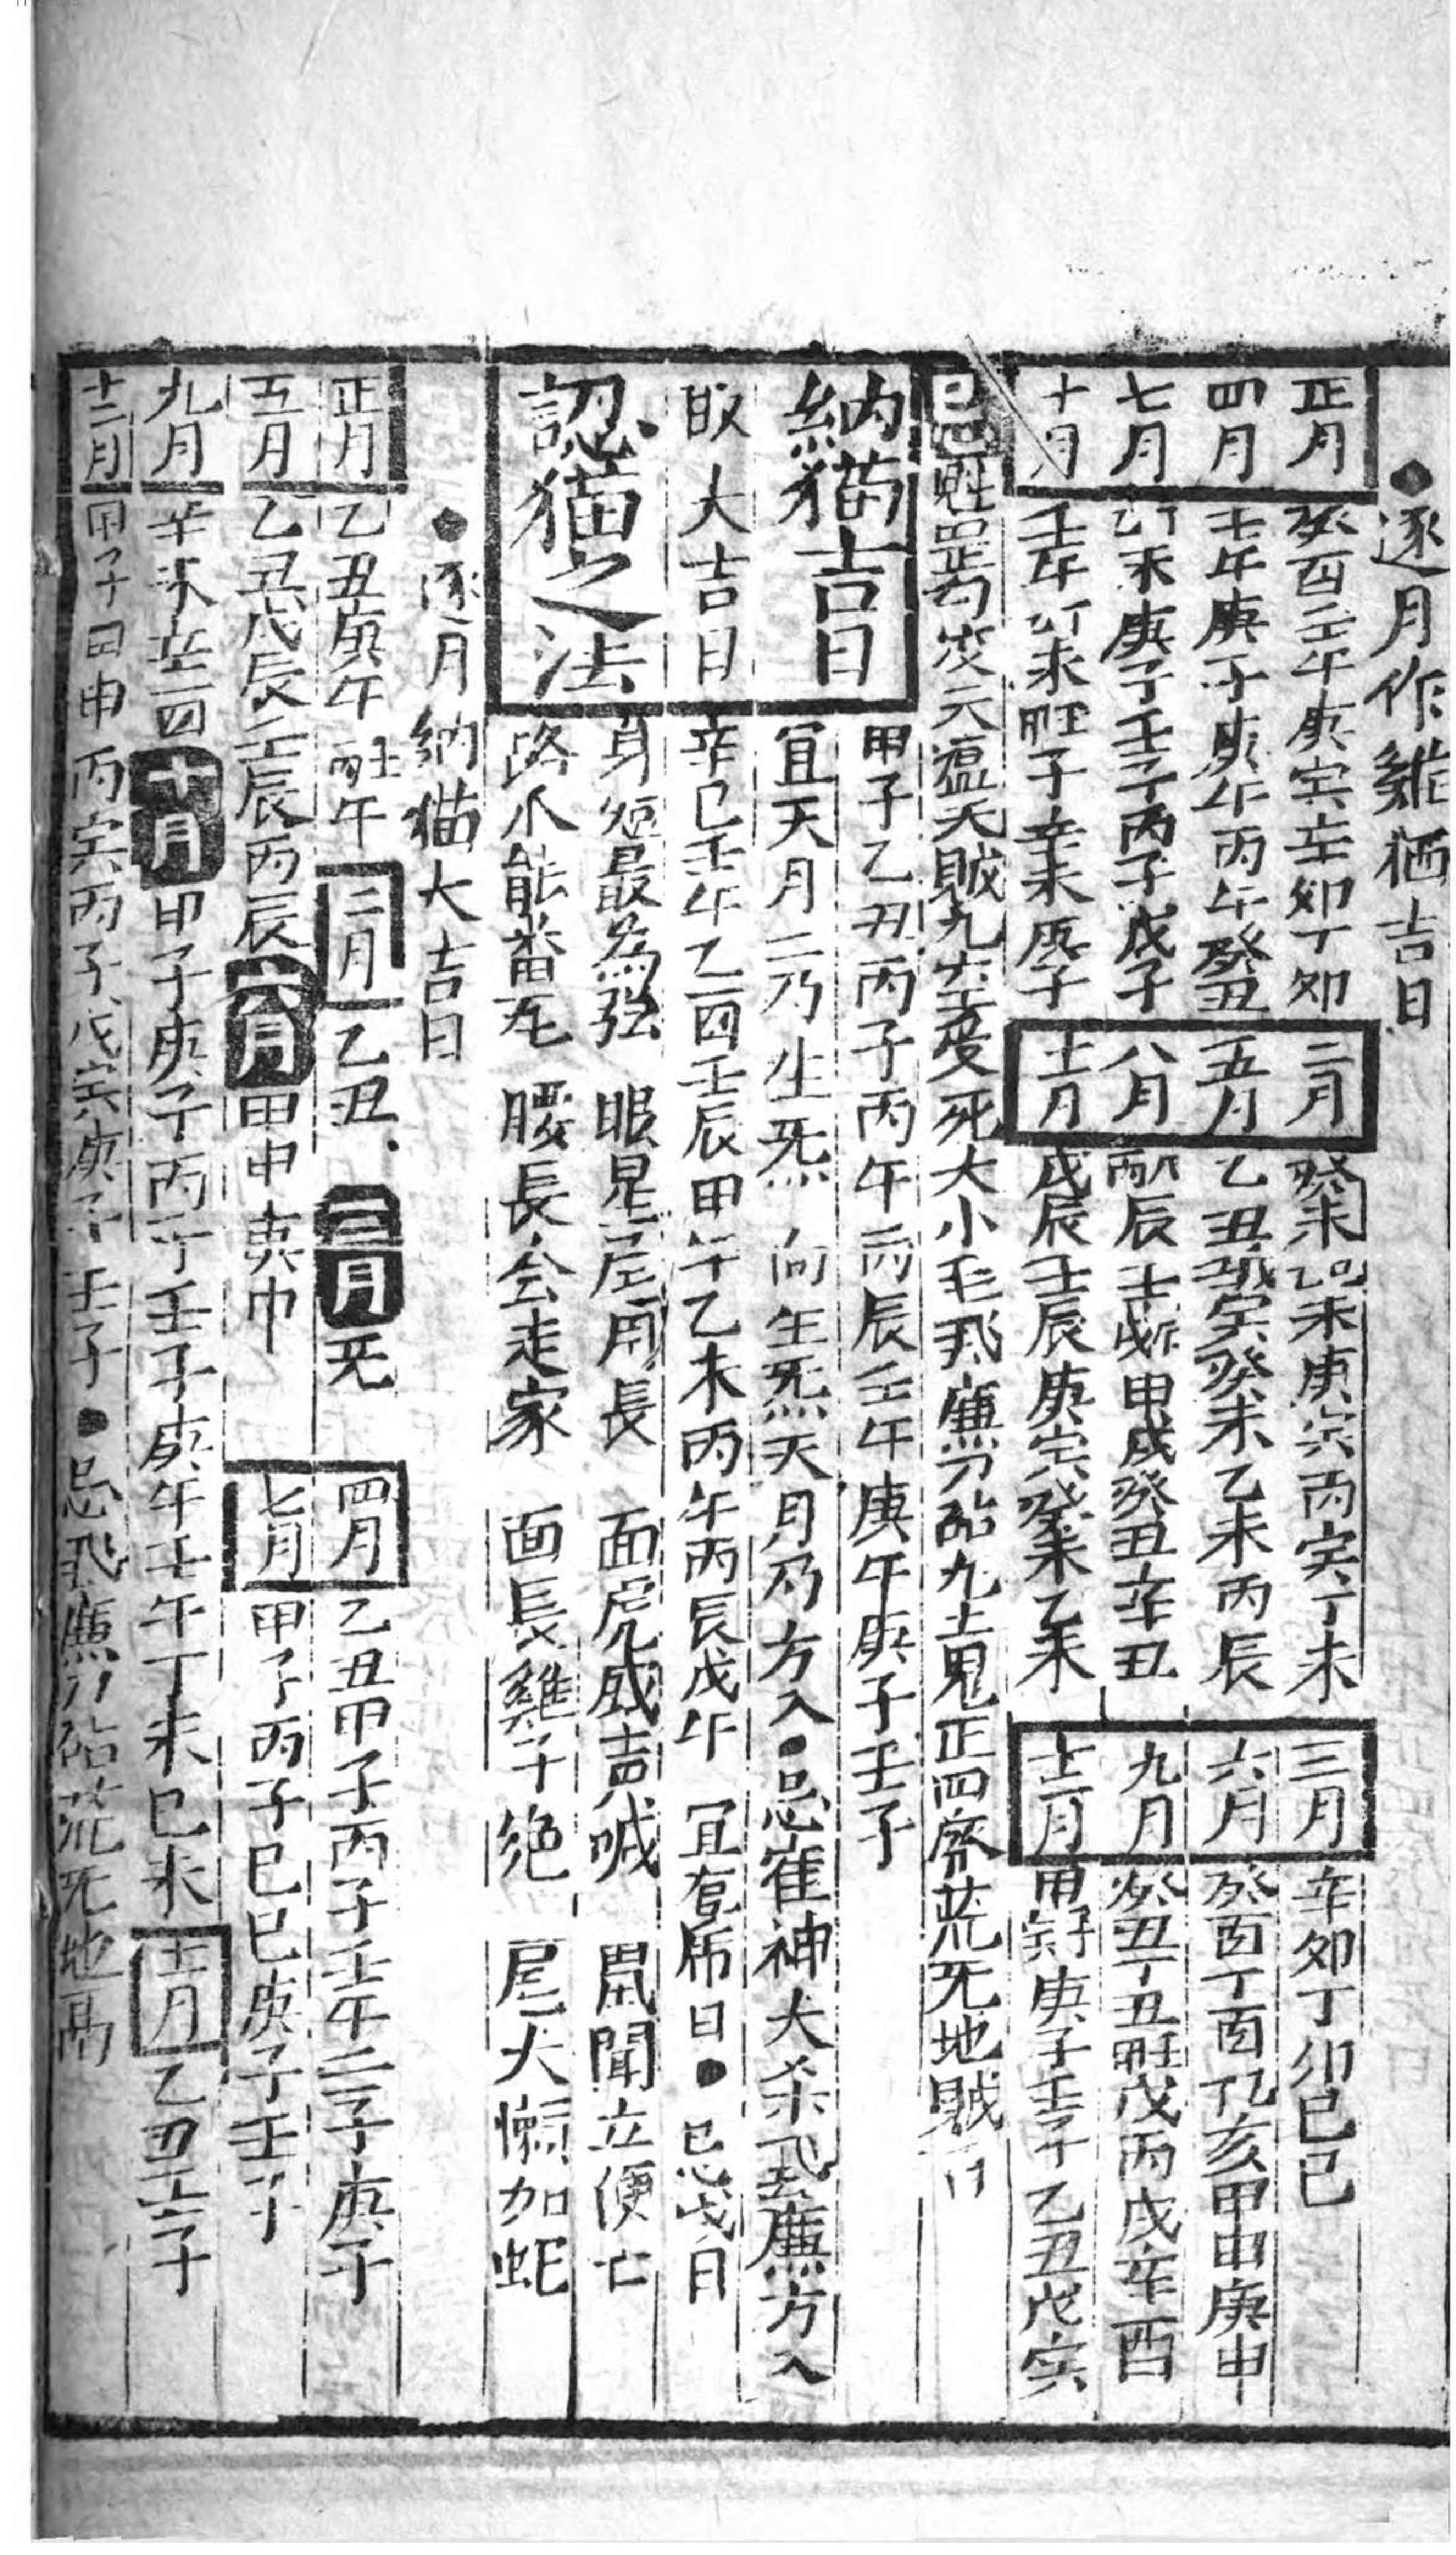 逐月作雞栖吉日
正月 癸酉壬午庚寅辛卯丁卯 二月 癸未 未庚寅丙寅丁未 三月 辛卯丁卯己巳
四月 壬午庚子庚午丙午癸丑 五月 乙丑 寅癸未乙未丙辰 六月 癸酉丁酉 亥甲申庚申
七月 未庚子壬子丙子戊子 八月 辰 甲戌癸丑辛丑 九月 癸丑丁丑 戊丙戌辛酉
十月 壬午 未 子辛未庚子 十一月 戊辰壬辰庚寅癸未乙未 十二月 庚子壬子乙丑戊寅
忌魁罡勾 元瘟天賊九空受死大小耗飛廉刀砧九土鬼正四廢荒死地賊
納猫吉日 甲子乙丑丙子丙午丙辰壬午庚午庚子壬子
宜天月二乃生炁 向生炁天月乃方入●忌崔神大杀飛廉方入
取大吉日 辛巳壬午乙酉壬辰甲午乙未丙午丙辰戊午 宜 日●忌 日
認猫之法 身短最為強 眼星尾用長 面虎威声喊 鼠聞立便亡
路爪能番瓦 腰長会走家 面長雞子绝 尾大懶加蛇
逐月納猫大吉日
正月 乙丑庚午 午 二月 乙丑 三月 无 四月 乙丑甲子丙子壬午 子庚子
五月 乙丑戊辰壬辰丙辰 六月 甲申 七月 甲子丙子己巳庚子壬子
九月 辛未辛酉 十月 甲子庚子丙子壬子庚午壬午丁未己未 十一月 乙丑壬子
十二月 甲子甲申丙寅丙子戊寅庚子壬子●忌飛廉刀砧荒死地